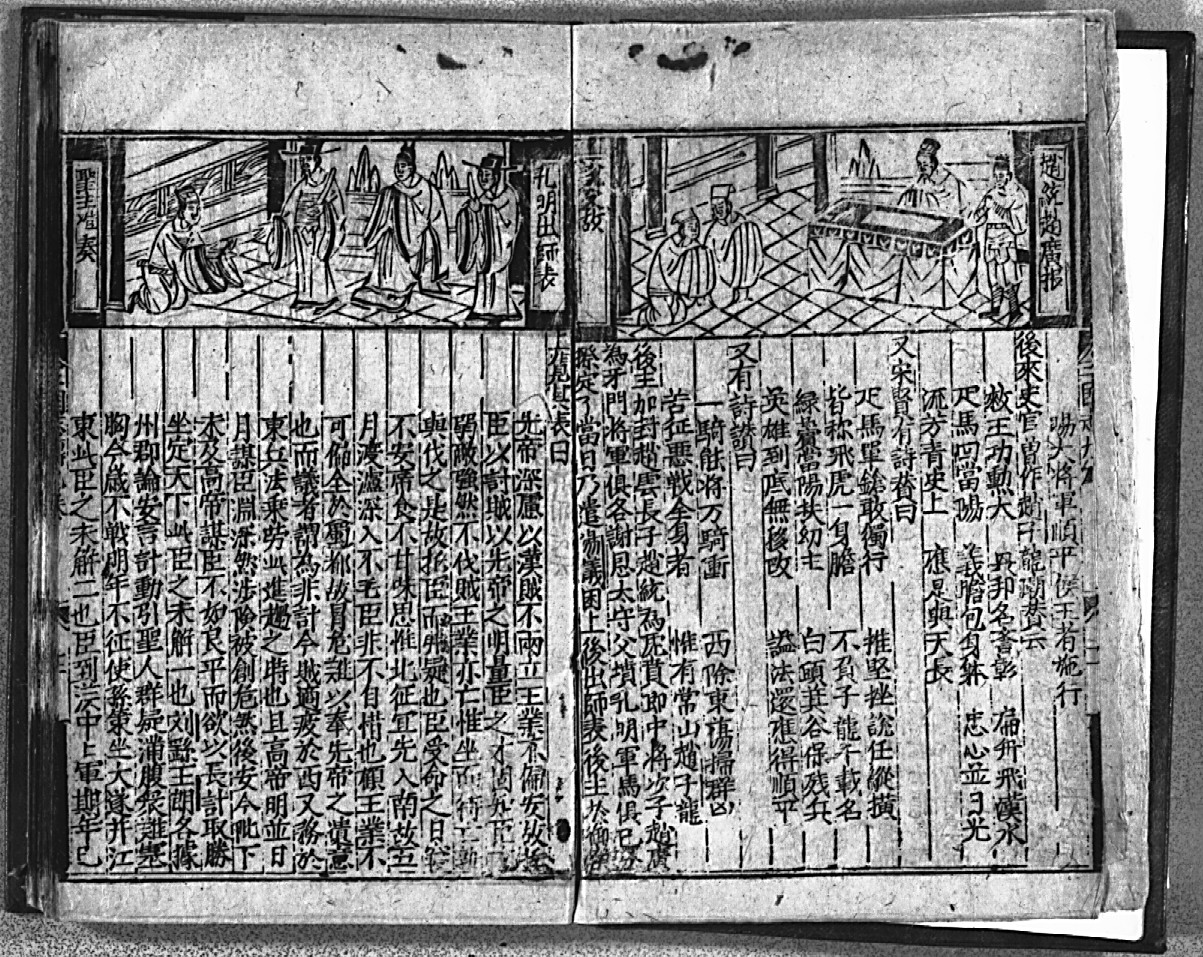 趙統趙廣報
孔明出師表
聖主准奏
明大將軍順平侯王者施行
後來史官曾作趙子龍贊云
救王功勳大 丹卯名香彰 扁舟飛漢水
疋馬回當陽 義膽包身躰 忠心並日光
流芳青史上 應是與天長
又宋賢有詩賛曰
疋馬單鎗敢獨行 推堅挫銳任縱橫
皆称飛虎一身膽 不負子龍千載名
綠鬢當陽扶幼主 白頭箕谷保残兵
英雄到底無移改 謚法還應得順平
又有詩讃曰
一騎能将万騎衝 西除東蕩掃群凶
苦征悪戦全身者 惟有常山趙子龍
後主加封趙雲長子趙統為虎賁郎中将次子趙廣
為牙門将軍俱各謝恩太守父墳孔明軍馬俱已
撥定了當日乃遣楊義囬上後出師表後主於
表曰
先帝深慮以漢賊不兩立王業不偏安故
臣以討賊以先帝之明量臣之才固
弱敵強然不伐賊王業亦亡惟坐而待亡
與伐之是故托臣而弗疑也臣受命之日寢
不安席食不甘味思惟北征宜先入南故五
月渡瀘深入不毛臣非不自惜也顧王業不
可偏全於蜀都故冒危難以奉先帝之遺意
也而議者謂為非計今賊適疲於西又務於
東兵法乘勞此進趨之時也且高帝明並日
月謀臣淵深然涉險被創危然後安今陛下
未及高帝謀臣不如良平而欲以長計取勝
坐定天下此臣之未解一也刘繇王朗各據
州郡論安言計動引聖人群疑滿腹衆難塞
胸今歲不戰明年不征使孫策坐大遂并江
東此臣之未解二也臣到漢中上軍期年已